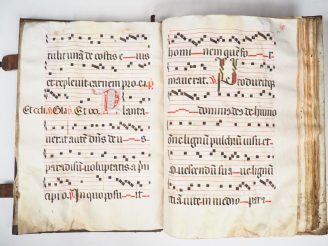 tulit unā de costis e—ius
et repleuit carnem pro ea
Et ecti. Glā. Et vo. Planta
uerat autē dn̄s deus
paradisum uoluptatis a prin
cipio. In quo posu—it
homi—nem quē fo—r
mauerat. Produxitqz
dominus deus de humo
omne lignū pulchrū uisu et
aduescendū sua—ue lignū
etiā uite in medio—para